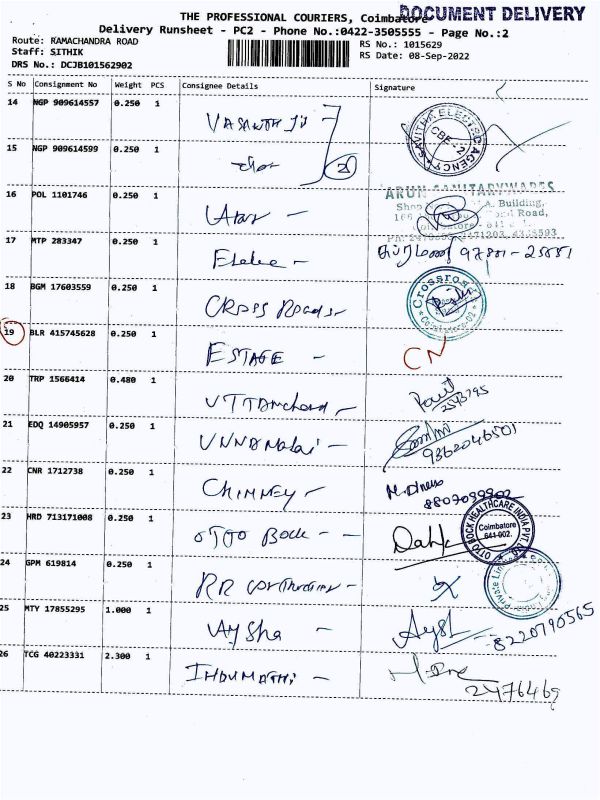 THE PROFESSIONAL COURIERS, Coimbatore DOCUMENT DELIVERY
Delivery Runsheet - PC2 - Phone No.:0422-3505555 - Page No.:2
Route: RAMACHANDRA ROAD
RS No.: 1015629
Staff: SITHIK
RS Date: 08-Sep-2022
DRS No.: DCJB101562902
S No Consignment No Weight PCS Consignee Details Signature
14 NGP 909614557 0.250 1
SAVITHA ELECTRIC AGENCY CBE-2
15 NGP 909614599 0.250 1 2
16 POL 1101746 0.250 1
ARUN SANITARYWARES
A. Building,
17 MTP 283347 0.250 1
18 BGM 17603559 0.250 1 CROSS Roads
Crossroads Coimbatore-02
19 BLR 415745628 0.250 1 ESTAGE - CN
20 TRP 1566414 0.480 1
21 EDQ 14905957 0.250 1 UNNAMalai -
9362046501
22 CNR 1712738 0.250 1 CHIMNEY -
8807099902
23 HRD 713171008 0.250 1 OTTO Bock - -
OTTO BOCK HEALTHCARE INDIA PVT. LTD. Coimbatore 641-002.
24 GPM 619814 0.250 1 RR
Private Limited
25 MTY 17855295 1.000 1 AySha -
8220790565
26 TCG 40223331 2.300 1 INDUMATHI -
2476469